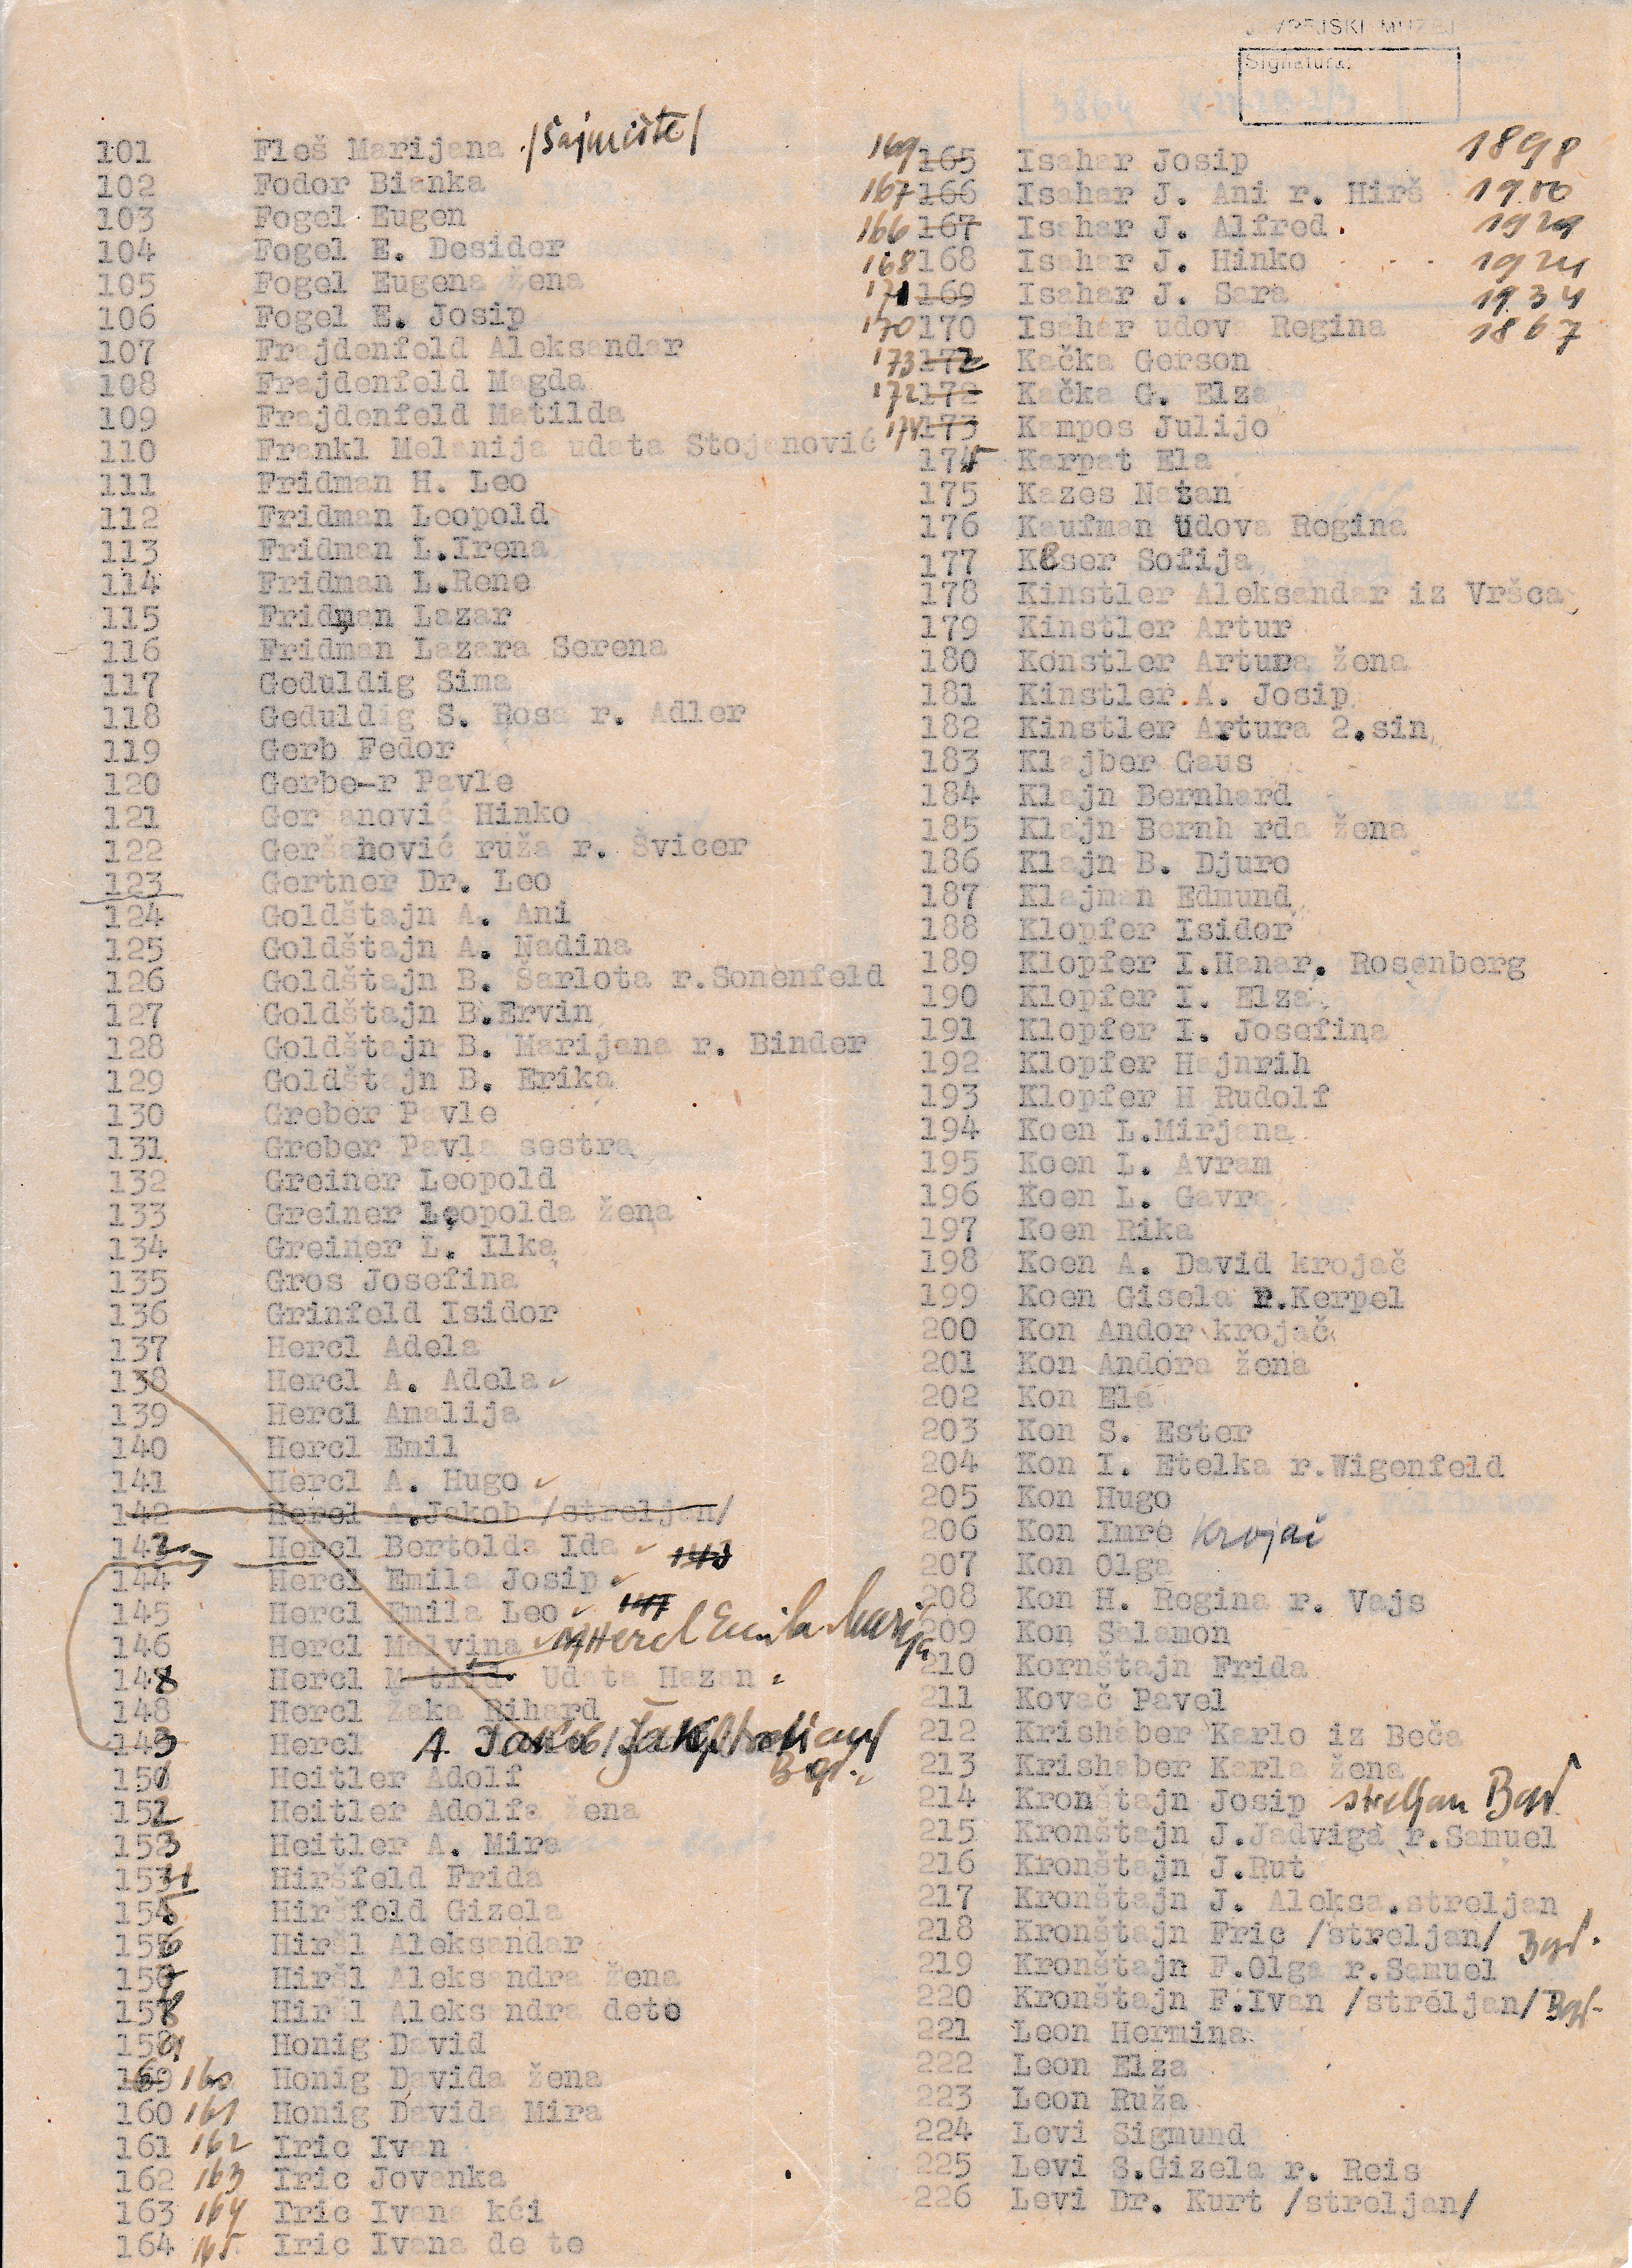 JEVREJSKI MUZEJ
Signatura:
101 Fleš Marijana /Sajmište/
102 Fodor Bianka
103 Fogel Eugen
104 Fogel E. Desider
105 Fogel Eugena žena
106 Fogel E. Josip
107 Frajdenfeld Aleksandar
108 Frajdenfeld Magda
109 Frajdenfeld Matilda
110 Frankl Melanija udata Stojanović
111 Fridman H. Leo
112 Fridman Leopold
113 Fridman L.Irena
114 Fridman L.Rene
115 Fridman Lazar
116 Fridman Lazara Serena
117 Geduldig Sima
118 Geduldig S. Rosa r. Adler
119 Gerb Fedor
120 Gerbe-r Pavle
121 Geršanović Hinko
122 Geršanović ruža r. Švicer
123 Gertner Dr. Leo
124 Goldštajn A. Ani
125 Goldštajn A. Nadina
126 Goldštajn B. Šarlota r.Sonenfeld
127 Goldštajn B.Ervin
128 Goldštajn B. Marijana r. Binder
129 Goldštajn B. Erika
130 Greber Pavle
131 Greber Pavla sestra
132 Greiner Leopold
133 Greiner Leopolda žena
134 Greiner L. Ilka
135 Gros Josefina
136 Grinfeld Isidor
137 Hercl Adela
138 Hercl A. Adela
139 Hercl Amalija
140 Hercl Emil
141 Hercl A. Hugo
142 Hercl A.Jakob /streljan/
142 Hercl Bertolda Ida 148
144 Hercl Emila Josip
145 Hercl Emila Leo 147
146 Hercl Malvina Hercl Emila Marija
148 Hercl Matild Udata Hazan
148 Hercl Žaka Rihard
143 Hercl A. Jakob/Žak/streljan/ Bgd.
151 Heitler Adolf
152 Heitler Adolfa žena
153 Heitler A. Mira
154 Hiršfeld Frida
155 Hiršfeld Gizela
156 Hiršl Aleksandar
157 Hiršl Aleksandra žena
158 Hiršl Aleksandra dete
159 Honig David
159 160 Honig Davida žena
160 161 Honig Davida Mira
161 162 Iric Ivan
162 163 Iric Jovanka
163 164 Iric Ivana kći
164 165 Iric Ivana de te
169 165 Isahar Josip 1898
167 166 Isahar J. Ani r. Hirš 1900
166 167 Isahar J. Alfred. 1929
168 168 Isahar J. Hinko 1924
171 169 Isahar J. Sara 1934
170 170 Isahar udova Regina 1867
173 172 Kačka Gerson
172 172 Kačka G. Elza
174 173 Kampos Julijo
175 Karpat Ela
175 Kazes Natan
176 Kaufman Udova Regina
177 Keser Sofija
178 Kinstler Aleksandar iz Vršca
179 Kinstler Artur
180 Konstler Artura žena
181 Kinstler A. Josip
182 Kinstler Artura 2.sin
183 Klajber Gaus
184 Klajn Bernhard
185 Klajn Bernharda žena
186 Klajn B. Djuro
187 Klajman Edmund
188 Klopfer Isidor
189 Klopfer I.Hanar. Rosenberg
190 Klopfer I. Elza
191 Klopfer I. Josefina
192 Klopfer Hajnrih
193 Klopfer H Rudolf
194 Koen L.Mirjana
195 Koen L. Avram
196 Koen L. Gavra
197 Koen Rika
198 Koen A. David krojač
199 Koen Gisela r.Kerpel
200 Kon Andor krojač
201 Kon Andora žena
202 Kon Ela
203 Kon S. Ester
204 Kon I. Etelka r.Wigenfeld
205 Kon Hugo
206 Kon Imre krojač
207 Kon Olga
208 Kon H. Regina r. Vajs
209 Kon Salamon
210 Kornštajn Frida
211 Kovač Pavel
212 Krishaber Karlo iz Beča
213 Krishaber Karla žena
214 Kronštajn Josip streljan Bgd.
215 Kronštajn J.Jadviga r.Samuel
216 Kronštajn J.Rut
217 Kronštajn J. Aleksa.streljan
218 Kronštajn Fric /streljan/ Bgd.
219 Kronštajn F.Olga r.Samuel
220 Kronštajn F.Ivan /streljan/ Bgd.
221 Leon Hermina
222 Leon Elza
223 Leon Ruža
224 Levi Sigmund
225 Levi S.Gizela r. Reis
226 Levi Dr. Kurt /streljan/